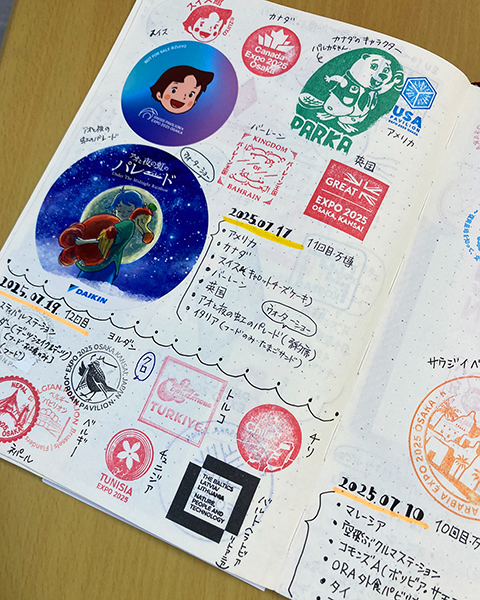 スイス
カナダ
カナダのキャラクター
パルカちゃん
と
Canada
Expo 2025
Osaka
NOT FOR SALE
EXPO 2025 OSAKA
PARKA
USA
PAVILION
アメリカ
バーレーン
KINGDOM
OF
BAHRAIN
英国
GREAT
EXPO 2025
OSAKA KANSAI
アオと夜の虹の
パレード
ウォーターショー
アオと夜の虹の
パレード
Under The Midnight Rainbow
DAIKIN
2025.07.17
11回目万博
・アメリカ
・カナダ
・スイス(キャロットチーズケーキ)
・バーレーン
・英国
ウォーターショー
・アオと夜の虹のパレード
・イタリア(フードのみ
2025.07.19.
12回目
ヨルダン
EXPO 2025 OSAKA KANSAI JAPAN
JORDAN PAVILION
NEPAL
OSAKA
ネパール
ベルギー
TÜRKİYE
トルコ
チリ
TUNISIA
EXPO 2025
チュニジア
THE BALTICS
LATVIA/
LITHUANIA
NATURE,
PEOPLE AND
TECHNOLOGY
サウジ
ARABIA EXPO 2025 OSAKA
2025.07.10
10回目
・マレーシア
・空飛ぶクルマステーション
・コモンズA(ボリビア・
・ORA外食パビリ
・タイ